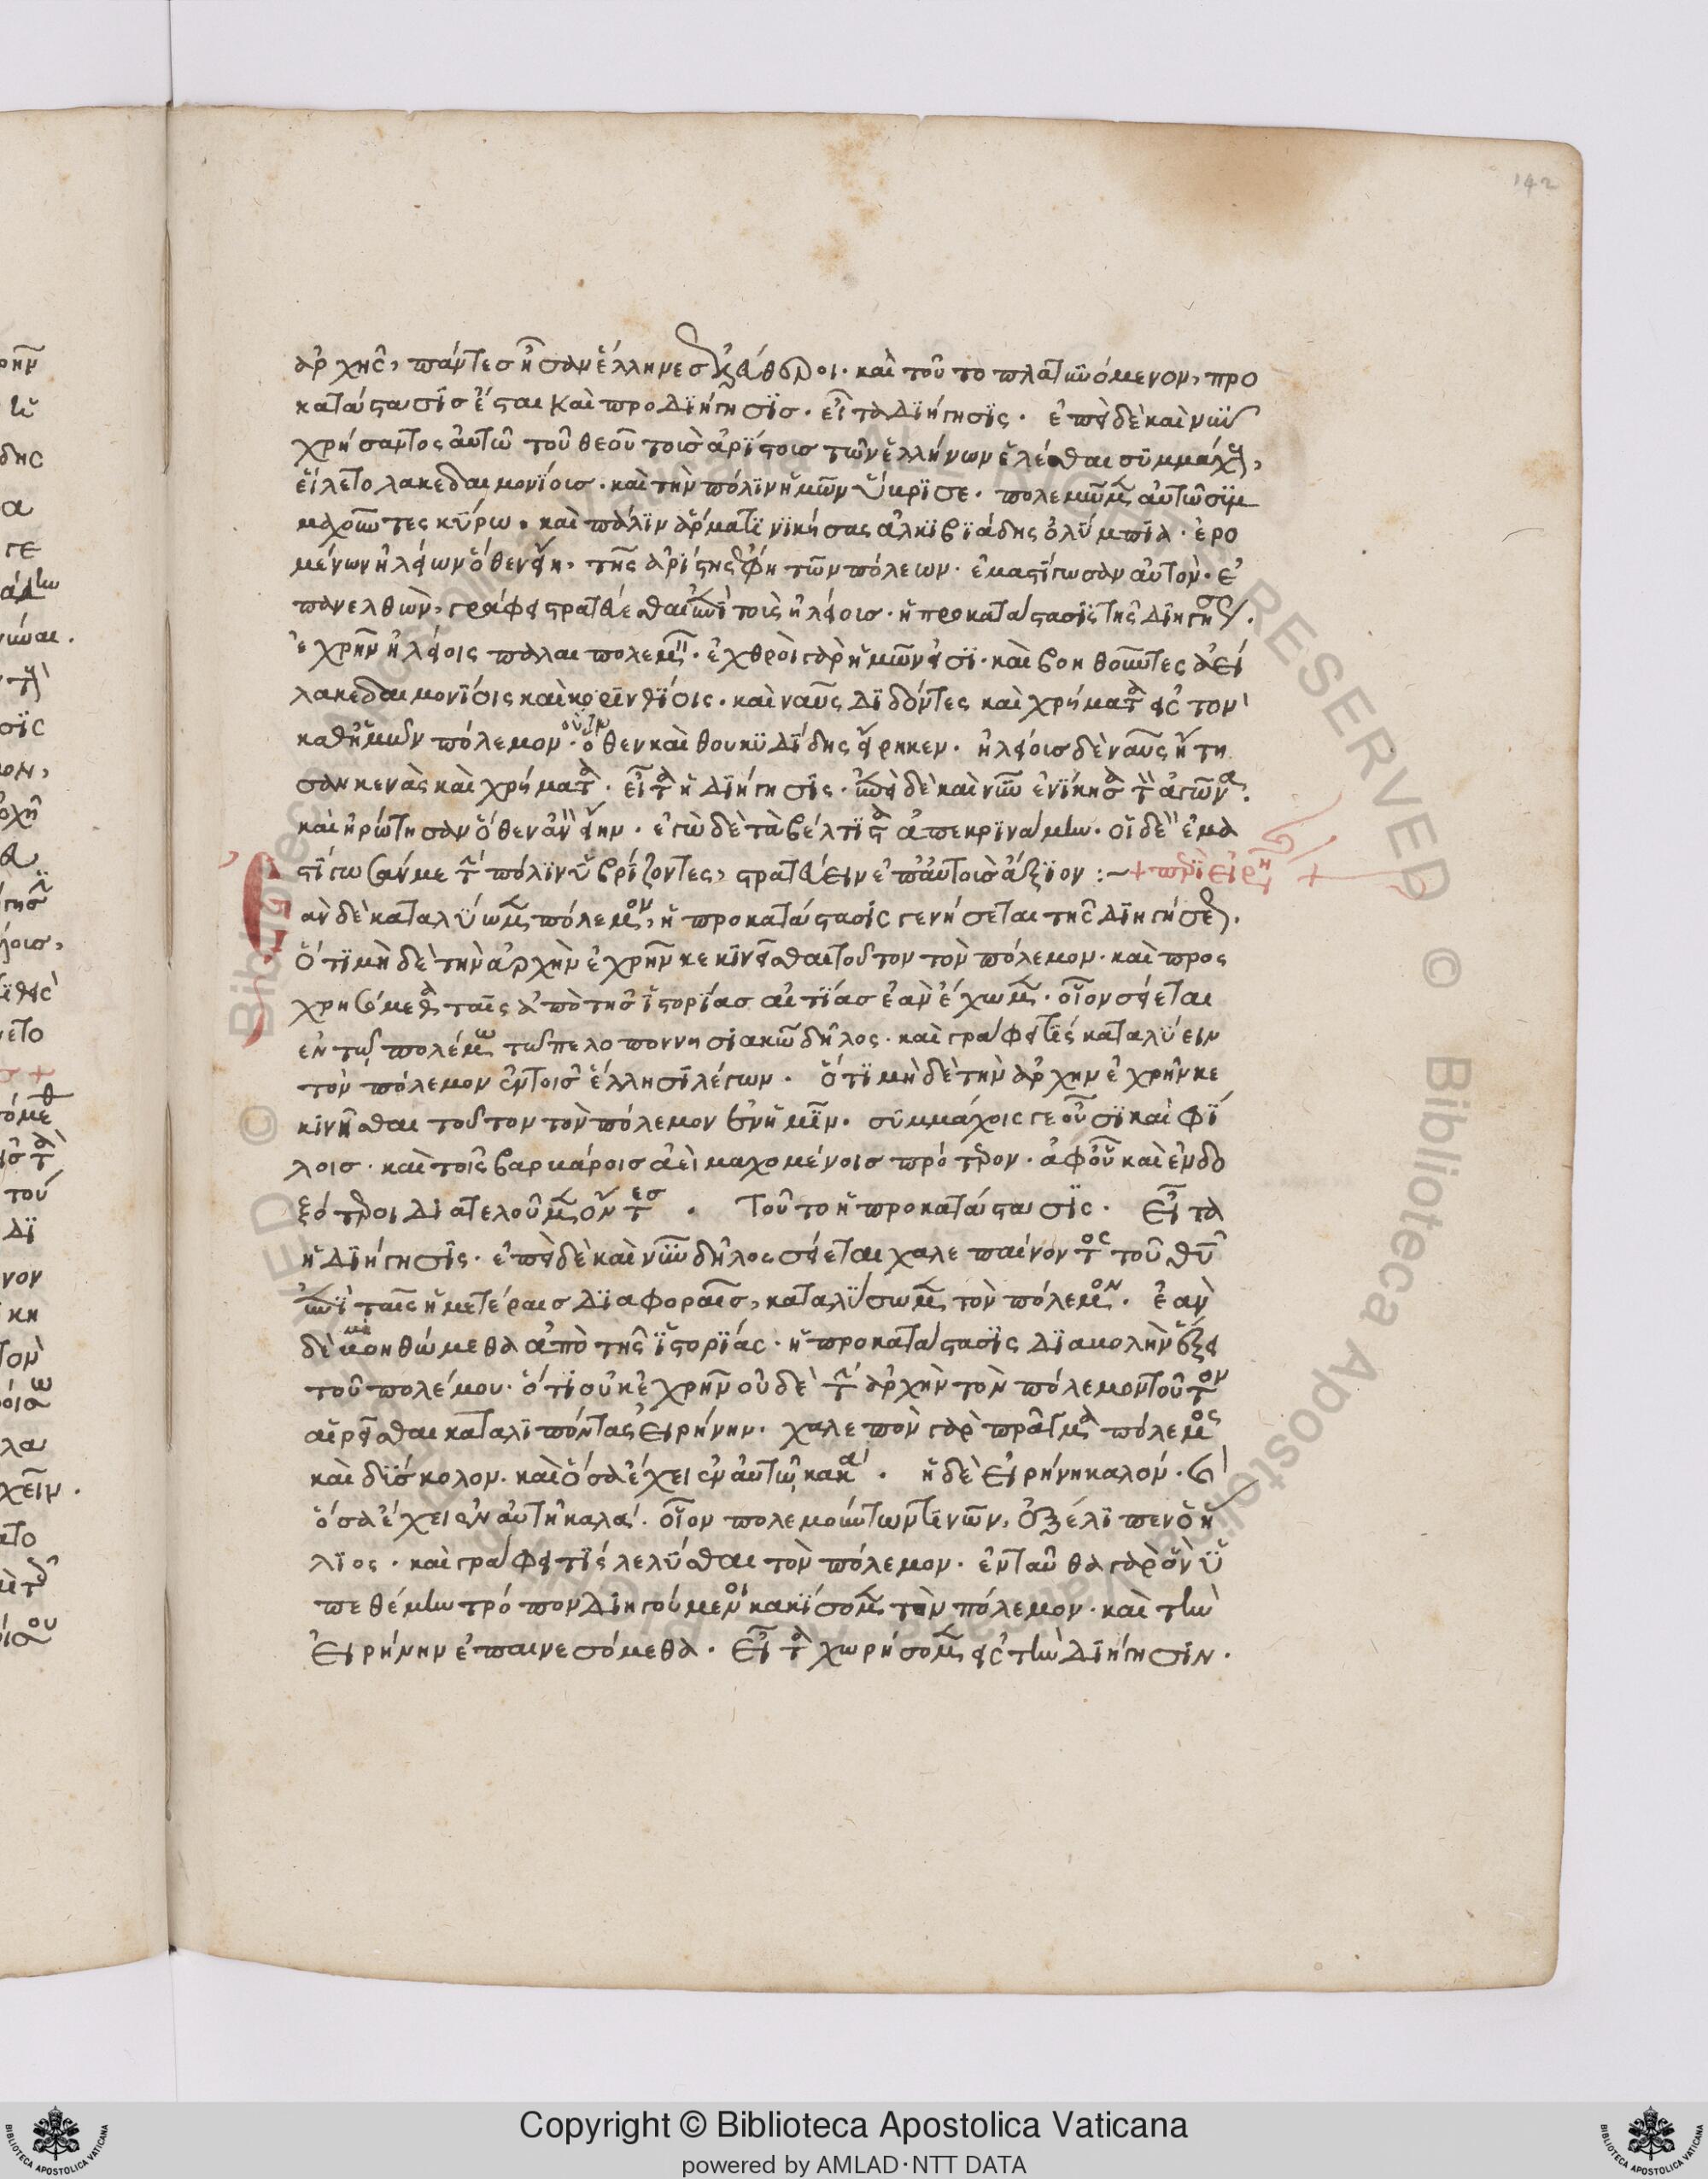 ἀρχῆς, πάντες ἦσαν ἕλληνες ἐλεύθεροι. καὶ τοῦτο πλατυνόμενον, προ
κατάστασις ἔσται καὶ προδιήγησις. εἶτα διήγησις. ἐπεὶ δὲ καὶ νῦν
χρήσαντος αὐτῶ τοῦ θεοῦ τοῖς ἀρίστοις τῶν ἑλλήνων ἑλέσθαι συμμάχοις,
εἵλετο λακεδαιμονίοις. καὶ τὴν πόλιν ἡμῶν ὕβρισε. πολεμοῦμεν αὐτῶ συμ
μαχοῦντες κύρω. καὶ πάλιν ἅρματι νικήσας ἀλκιβιάδης ὀλύμπια. ἐρο
μένων ἠλείων ὅθεν εἴη, τῆς ἀρίστης ἔφη τῶν πόλεων. ἐμαστίγωσαν αὐτόν. ἐ
πανελθὼν, γράφει στρατεύεσθαι ἐπὶ τοῖς ἠλείοις. ἡ προκατάστασις τῆς διηγήσεως.
ἐχρῆν ἠλείοις πάλαι πολεμεῖν. ἐχθροὶ γὰρ ἡμῶν εἰσι. καὶ βοηθοῦντες ἀεὶ
λακεδαιμονίοις καὶ κορινθίοις. καὶ ναῦς διδόντες καὶ χρήματα εἰς τὸν
καθ' ἡμῶν πόλεμον. ὅθεν καὶ θουκυδίδης εἴρηκεν. ἠλείοις δὲ ναῦς ἤτη
σαν κενὰς καὶ χρήματα. εἶτα ἡ διήγησις. ἐπεὶ δὲ καὶ νῦν ἐνίκησα τὸν ἀγῶνα.
καὶ ἠρώτησαν ὅθεν ἂν εἴην. ἐγὼ δὲ τὰ βέλτιστα ἀπεκρινάμην. οἱ δὲ ἐμα
στίγωσάν με τὴν πόλιν ὑβρίζοντες, στρατεύειν ἐπ' αὐτοὺς ἄξιον :~ + περὶ εἰρήνης +
ἐὰν δὲ καταλύωμεν πόλεμον, ἡ προκατάστασις γενήσεται τῆς διηγήσεως.
ὅτι μὴ δὲ τὴν ἀρχὴν ἐχρῆν κεκινεῖσθαι τοῦτον τὸν πόλεμον. καὶ προς
χρησόμεθα ταῖς ἀπὸ τῆς ἱστορίας αἰτίας ἐὰν ἔχωμεν. οἷον σείεται
ἐν τῶ πολέμω τῶ πελοποννησιακῶ δῆλος. καὶ γράφει τίς καταλύειν
τὸν πόλεμον ἐν τοῖς ἕλλησι λέγων. ὅτι μὴ δὲ τὴν ἀρχὴν ἐχρῆν κε
κινῆσθαι τοῦτον τὸν πόλεμον ἐν ἡμῖν. συμμάχοις γε οὖσι καὶ φί
λοις. καὶ τοῖς βαρβάροις ἀεὶ μαχομένοις πρότερον. ἀφ' οὗ καὶ ἐνδο
ξότεροι διατελοῦμεν ὄντες. Τοῦτο ἡ προκατάστασις. Εἶτα
ἡ διήγησις. ἐπεὶ δὲ καὶ νῦν δῆλος σείεται χαλεπαίνοντος τοῦ θεοῦ
ἐπὶ ταῖς ἡμετέραις διαφοραῖς, καταλύσωμεν τὸν πόλεμον. ἐὰν
δὲ μὴ βοηθώμεθα ἀπὸ τῆς ἱστορίας. ἡ προκατάστασις διαβολὴν ἕξει
τοῦ πολέμου. ὅτι οὐκ ἐχρῆν οὐδὲ τὴν ἀρχὴν τὸν πόλεμον τοῦτον
αἱρεῖσθαι καταλιπόντας εἰρήνην. χαλεπὸν γὰρ πρᾶγμα πόλεμος
καὶ δύσκολον. καὶ ὅσα ἔχει ἐν αὐτῶ κακά. ἡ δὲ εἰρήνη καλόν. καὶ
ὅσα ἔχει ἐν αὐτῆ καλά. οἷον πολεμούντων τινῶν, ἐξέλιπεν ὁ ἥ
λιος. καὶ γράφει τίς λελύσθαι τὸν πόλεμον. ἐνταῦθα γὰρ ὃν ὑ
πεθέμην τρόπον διηγούμενοι κακίσομεν τὸν πόλεμον. καὶ τὴν
εἰρήνην ἐπαινεσόμεθα. εἶτα χωρήσομεν εἰς τὴν διήγησιν.
142
Copyright © Biblioteca Apostolica Vaticana
powered by AMLAD·NTT DATA